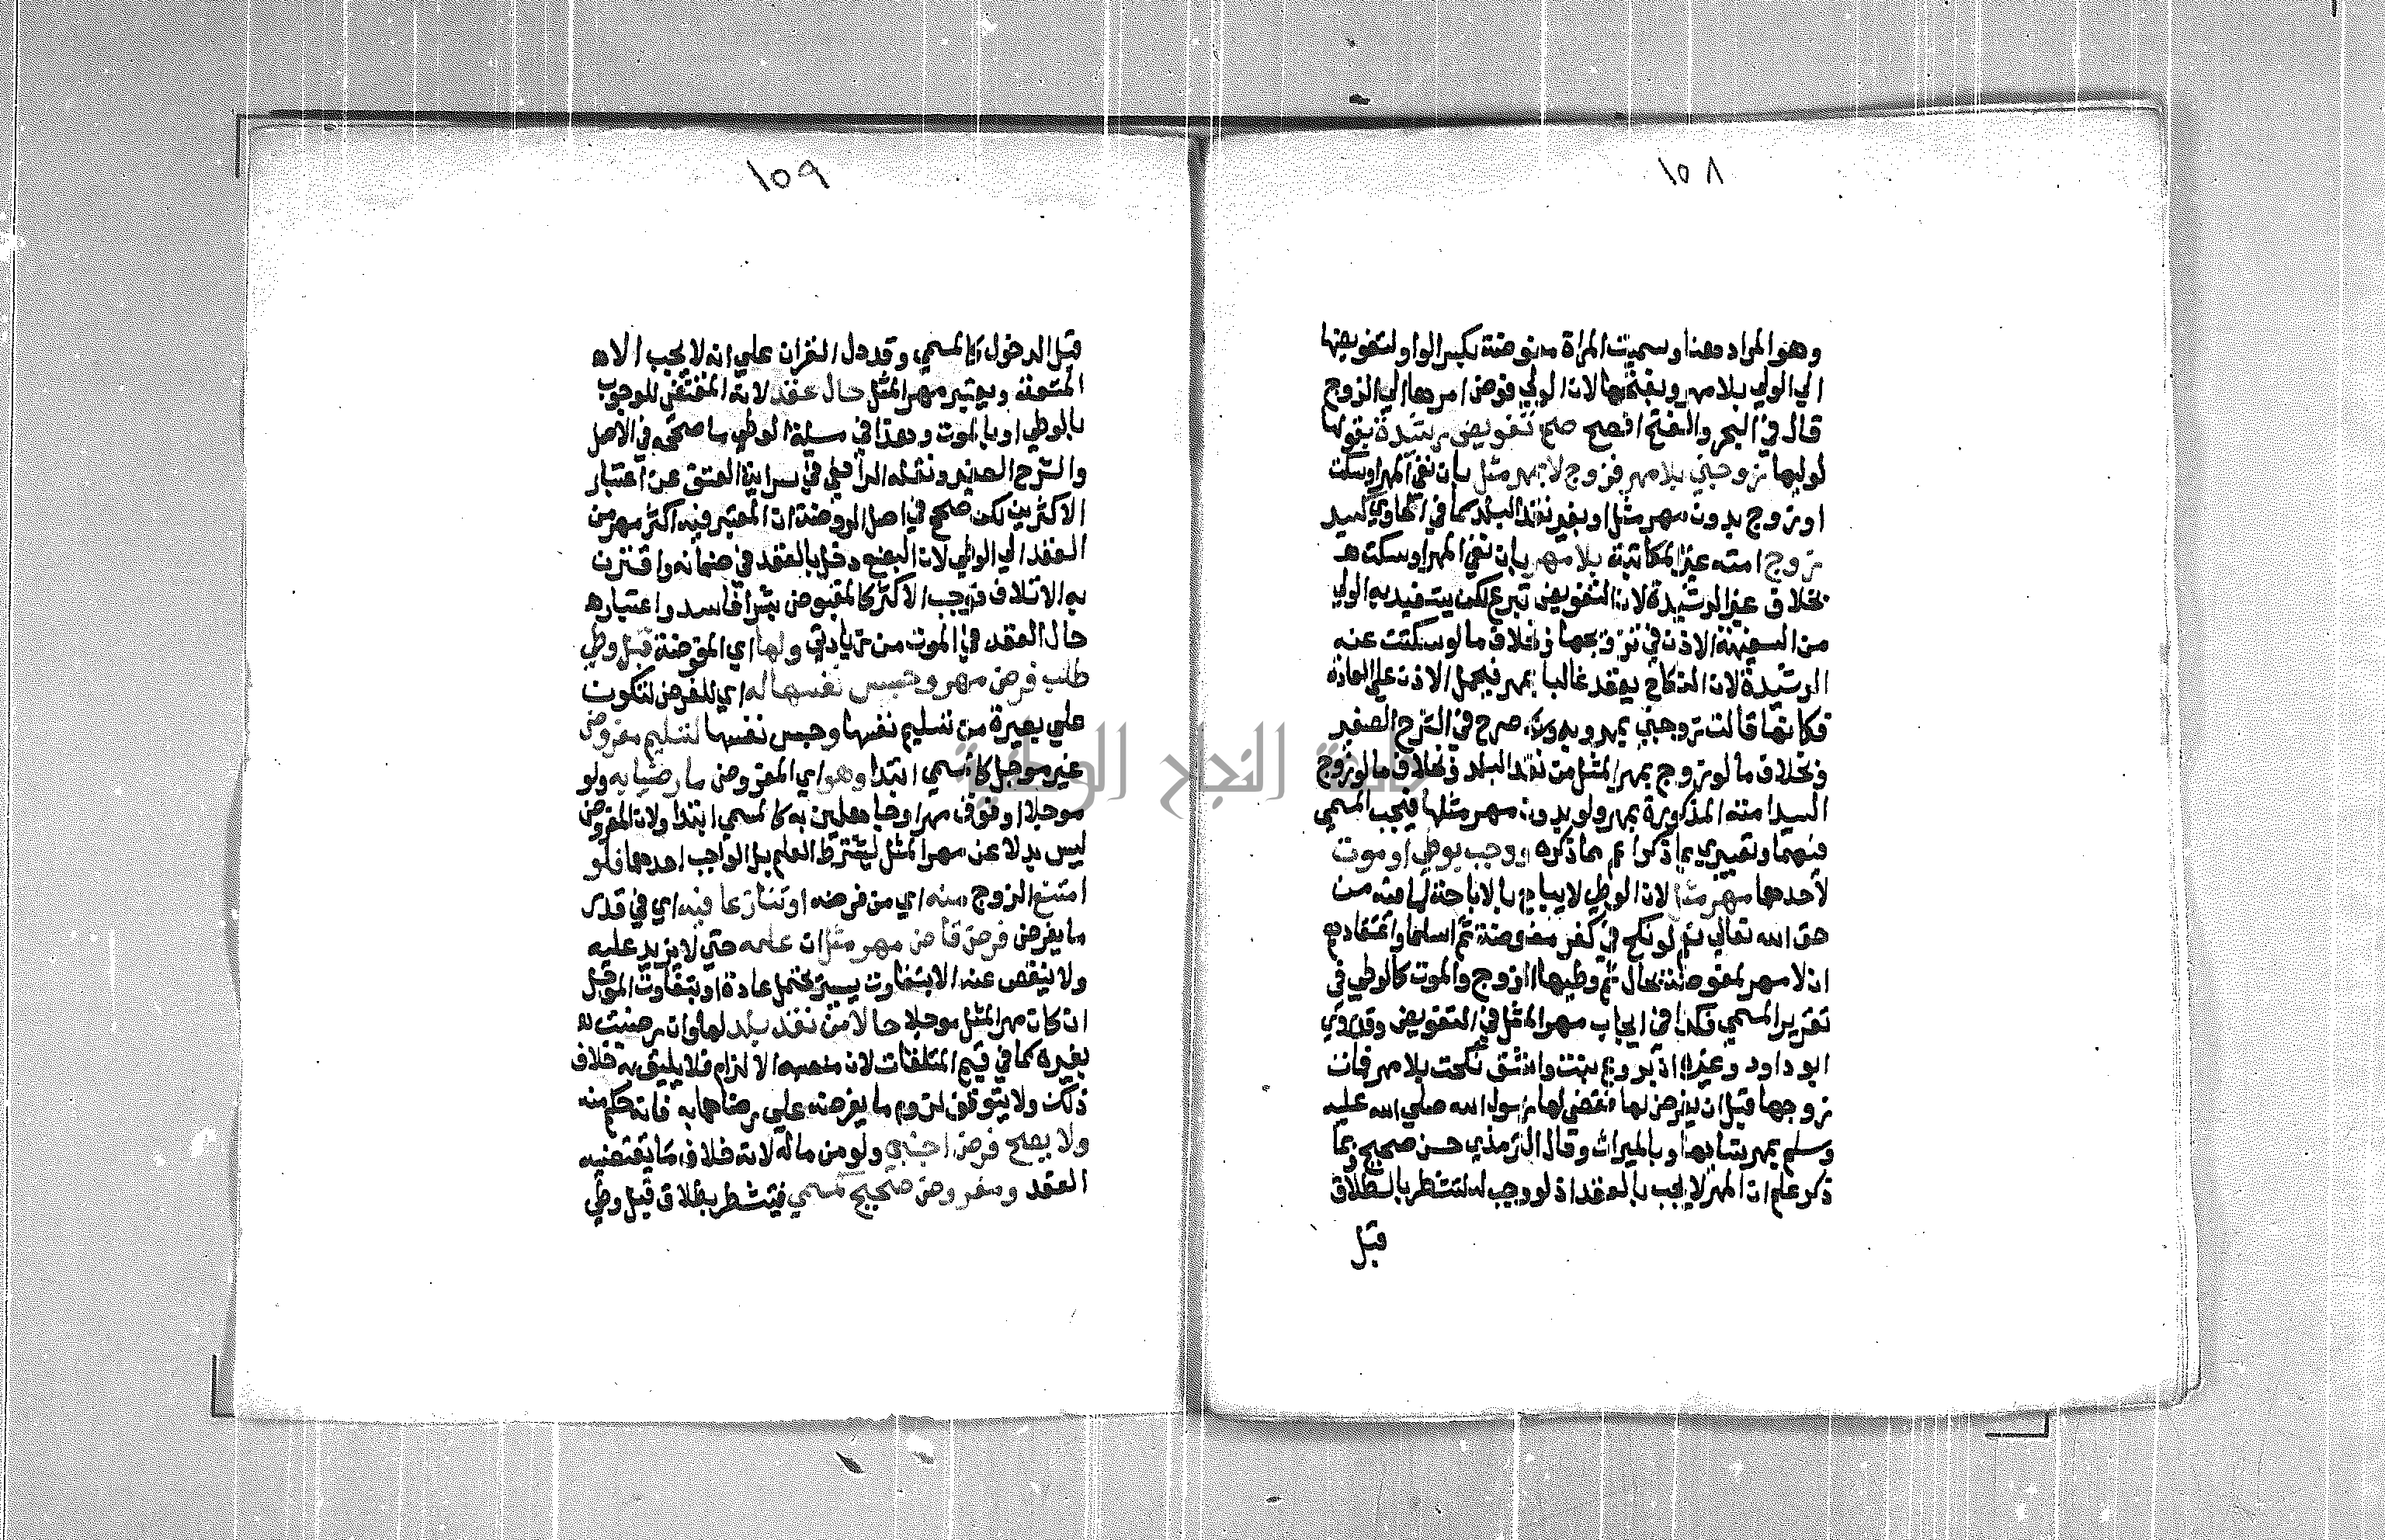 ١٥٨
وهو المراد هنا وسميت المراة مفوضة بكسر الواو لتفويضها
الي الولي بلا مهر وبفتحها لان الولي فوض امرها الي الزوج
قال في البحر والفتح افصح صح تفويض رشيدة بقولها
لوليها زوجني بلا مهر فزوج لا بمهر مثل بان نفي المهر او سكت
او زوج بدون مهر مثل او بغير نقد البلد كما في الحاوي كسيد
زوج امته غير المكاتبة بلا مهر بان نفي المهر او سكت هـ
بخلاف غير الرشيدة لان التفويض تبرع لكن يستفيد به الولي
من السفيهة الاذن في تزويجها وبخلاف ما لو سكتت عنه
الرشيدة لان النكاح يعقد غالبا بمهر فيحمل الاذن علي العادة
فكانها قالت زوجني بمهر وبه صرح في الشرح الصغير
وبخلاف ما لو زوج بمهر المثل من نقد البلد وبخلاف ما لو زوج
السيد امته المذكورة بمهر ولو بدون مهر مثلها فيجب المسمي
فيهما وتعبيري بما ذكر اعم مما ذكره ووجب بوطي او موت
لاحدهما مهر مثل لان الوطي لا يباح بالاباحة لما فيه من
حق الله تعالي نعم لو نكح في كفر مفوضة ثم اسلما واعتقادهم
ان لا مهر لمفوضة بحال ثم وطيها الزوج والموت كالوطي في
تقرير المسمي فكذا في ايجاب مهر المثل في التفويض وقد روي
ابو داود وغيره ان بروع بنت واشق نكحت بلا مهر فمات
زوجها قبل ان يفرض لها فقضي لها رسول الله صلي الله عليه
وسلم بمهر نسايها وبالميراث وقال الترمذي حسن صحيح وبما
ذكر علم ان المهر لا يجب بالعقد اذ لو وجب به لتشطر بالطلاق
قبل
١٥٩
قبل الدخول كالمسمي وقد دل القران علي انه لا يجب الا هـ
المتعة ويعتبر مهر المثل حال عقد لانه المقتضي للوجوب
بالوطي او بالموت وهذا في مسيلة الوطي ما صححه في الاصل
والشرح الصغير ونقله الرافعي في سراية العتق عن اعتبار
الاكثرين لكن صحح في اصل الروضة ان المعتبر فيه اكثر مهر من
العقد الي الوطي لان البضع دخل بالعقد في ضمانه واقترن
به الاتلاف فوجب الاكثر كالمقبوض بشرا فاسد واعتباره
حال العقد في الموت من زيادتي ولها اي المفوضة قبل وطي
طلب فرض مهر وحبس نفسها له اي للفرض لتكون
علي بصيرة من تسليم نفسها وحبس نفسها لتسليم مفروض
غير موجل كالمسمي ابتدا وهو اي المفروض ما رضيا به ولو
موجلا او فوق مهر او جاهلين به كالمسمي ابتدا ولان المفروض
ليس بدلا عن مهر المثل ليشترط العلم بل الواجب احدهما فلو
امتنع الزوج منه اي من فرضه او تنازعا فيه اي في قدر
ما يفرض فرض قاض مهر مثل ان علمه حتي لا يزيد عليه
ولا ينقص عنه الا بتفاوت يسير يحتمل عادة او بتفاوت الموجل
ان كان مهر المثل موجلا حالا من نقد بلد لها وان رضيت له
بغيره كما في قيم المتلفات لان منصبه الالزام فلا يليق به خلاف
ذلك ولا يتوقف لزوم ما يفرضه علي رضاهما به فانه حكم منه
ولا يصح فرض اجنبي ولو من ماله لانه خلاف ما يقتضيه
العقد ومفروض صحيح كمسمي فيتشطر بطلاق قبل وطي
جامعة النجاح الوطنية